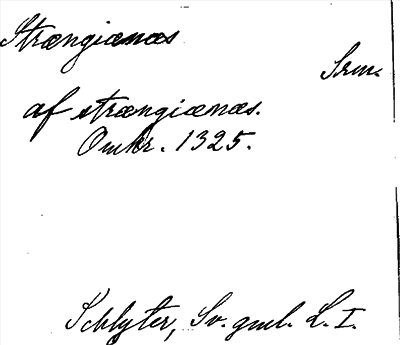 Strængianæs
Srm.
af strængianæs.
Omkr. 1325.
Schlyter, Sv. gml. L. I.